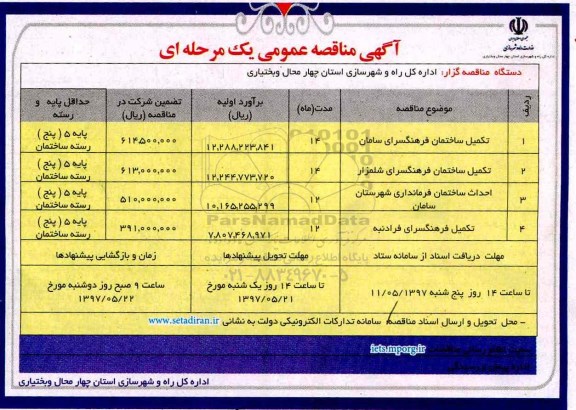 آگهی مناقصه عمومی یک مرحله ای
دستگاه مناقصه گزار: اداره کل راه و شهرسازی استان چهار محال وبختیاری
ردیف
موضوع مناقصه
مدت(ماه)
برآورد اولیه (ریال)
تضمین شرکت در مناقصه (ریال)
حداقل پایه و رسته
۱ تکمیل ساختمان فرهنگسرای سامان ۱۴ ۱۲,۲۸۸,۲۲۳,۸۴۱ ۶۱۴,۵۰۰,۰۰۰ پایه ۵ ( پنج ) رسته ساختمان
۲ تکمیل ساختمان فرهنگسرای شلمزار ۱۴ ۱۲,۲۴۴,۷۷۳,۷۲۰ ۶۱۳,۰۰۰,۰۰۰ پایه ۵ ( پنج ) رسته ساختمان
۳ احداث ساختمان فرمانداری شهرستان سامان ۱۲ ۱۰,۱۶۵,۲۵۵,۲۹۹ ۵۱۰,۰۰۰,۰۰۰ پایه ۵ ( پنج ) رسته ساختمان
۴ تکمیل فرهنگسرای فرادنبه ۱۲ ۷,۸۰۷,۴۶۸,۹۷۱ ۳۹۱,۰۰۰,۰۰۰ پایه ۵ ( پنج ) رسته ساختمان
مهلت دریافت اسناد از سامانه ستاد
مهلت تحویل پیشنهادها
زمان و بازگشایی پیشنهادها
تا ساعت ۱۴ روز پنج شنبه ۱۱/۰۵/۱۳۹۷
تا ساعت ۱۴ روز یک شنبه مورخ ۱۳۹۷/۰۵/۲۱
ساعت ۹ صبح روز دوشنبه مورخ ۱۳۹۷/۰۵/۲۲
– محل تحویل و ارسال اسناد مناقصه: سامانه تدارکات الکترونیکی دولت به نشانی www.setadiran.ir
iets.mporg.ir
اداره کل راه و شهرسازی استان چهار محال وبختیاری
ParsNamadData
۰۲۱-۸۸۳۴۹۶۷۰-۵